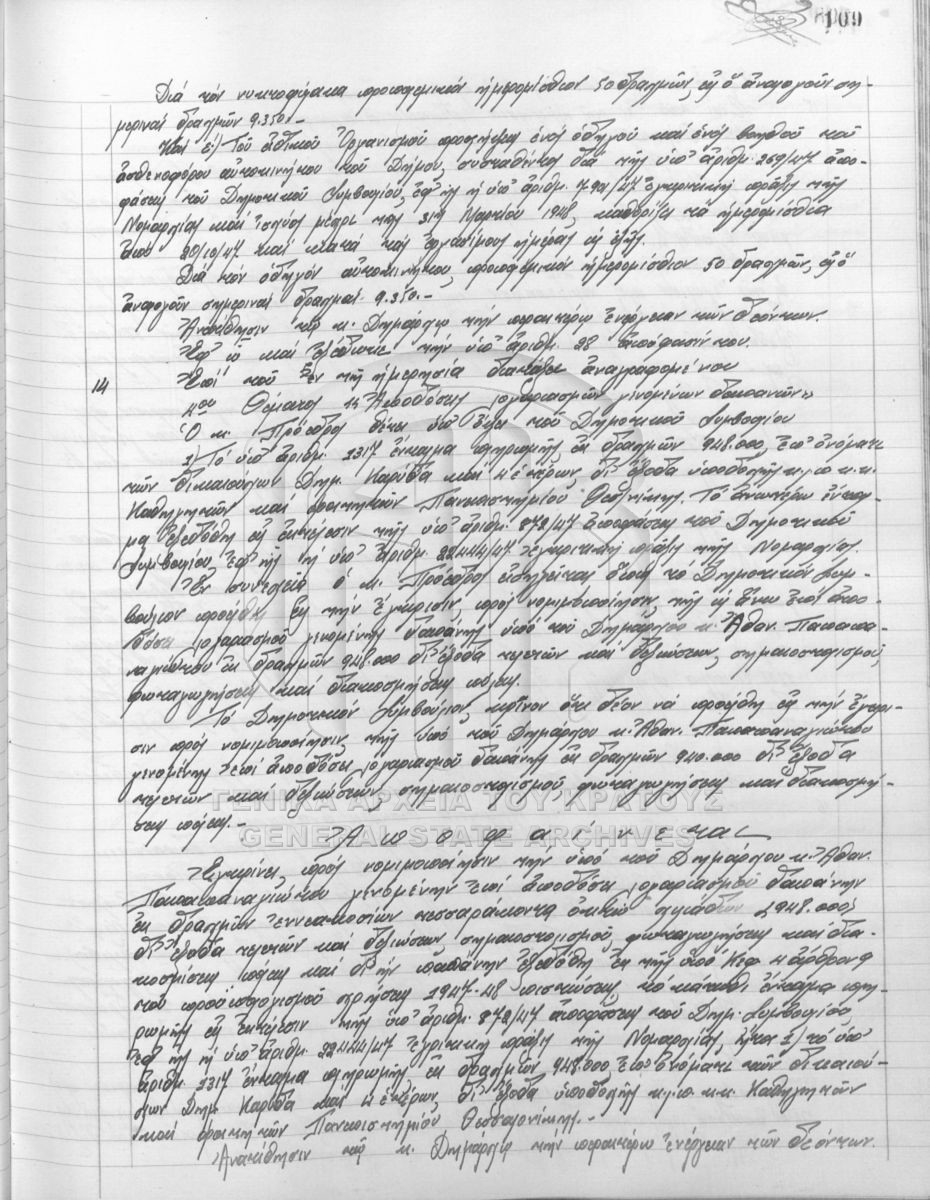 109
Διά τόν νυκτοφύλακα προπολεμικόν ἡμερομίσθιον 50 δραχμῶν, ἐξ ὅ ἀναλογοῦν ση-
μεριναί δραχμῶν 9.350.-
Καί ε) Τοῦ εἰδικοῦ Ὀργανισμοῦ προσλήψεως ἑνός ὁδηγοῦ καί ἑνός βοηθοῦ τοῦ
ἀσθενοφόρου αὐτοκινήτου τοῦ Δήμου, συσταθέντος διά τῆς ὑπ' ἀριθμ. 259/47 ἀπο-
φάσεως τοῦ Δημοτικοῦ Συμβουλίου, ἐφ' ἧς ἡ ὑπ' ἀριθμ. /47 ἐγκριτική πρᾶξις τῆς
Νομαρχίας καί ἰσχύος μέχρι τῆς 31ης Μαρτίου 1948, καθορίζει τά ἡμερομίσθια
ἀπό 20/10/47 καί κατά τάς ἐργασίμους ἡμέρας ὡς ἑξῆς.
Διά τόν ὁδηγόν αὐτοκινήτου, προπολεμικόν ἡμερομίσθιον 50 δραχμῶν, ἐξ ὅ
ἀναλογοῦν σημεριναί δραχμαί 9.350.-
Ἀνατίθησιν τῷ κ. Δημάρχῳ τήν περαιτέρω ἐνέργειαν τῶν δεόντων.
Ἐφ' ᾧ καί ἐξέδωκε τήν ὑπ' ἀριθμ. 28 ἀπόφασίν του.
14 Ἐπί τοῦ ἐν τῇ ἡμερησίᾳ διατάξει ἀναγραφομένου
4ου Θέματος "Ἀποδόσεις λογαριασμῶν γενομένων δαπανῶν"
Ὁ κ. Πρόεδρος θέτει ὑπ' ὄψει τοῦ Δημοτικοῦ Συμβουλίου
1) Τό ὑπ' ἀριθμ. 1317 ἔνταλμα πληρωμῆς ἐκ δραχμῶν 948.000, ἐπ' ὀνόματι
τῶν δικαιούχων Δημ. Καρύδα καί 4 ἑτέρων, δι' ἔξοδα ὑποδοχῆς κ.λ.π. κ.κ.
Καθηγητῶν καί φοιτητῶν Πανεπιστημίου Θεσ/νίκης. Τό ἀνωτέρω ἔνταλ-
μα ἐξεδόθη εἰς ἐκτέλεσιν τῆς ὑπ' ἀριθμ. 872/47 ἀποφάσεως τοῦ Δημοτικοῦ
Συμβουλίου, ἐφ' ἧς ἡ ὑπ' ἀριθμ. 22444/47 ἐγκριτική πρᾶξις τῆς Νομαρχίας.
Ἐν συνεχείᾳ ὁ κ. Πρόεδρος εἰσηγεῖται ὅπως τό Δημοτικόν Συμ-
βούλιον προβῇ εἰς τήν ἔγκρισιν, πρός νομιμοποίησιν, τῆς ὡς ἄνω ἐπί ἀπο-
δόσει λογαριασμοῦ γενομένης δαπάνης ὑπό τοῦ Δημάρχου κ. Ἀθαν. Παπαπα-
ναγιώτου ἐκ δραχμῶν 948.000 δι' ἔξοδα τελετῶν καί δεξιώσεων, σημαιοστολισμοῦ,
φωταγωγήσεως καί διακοσμήσεως πόλεως.
Τό Δημοτικόν Συμβούλιον, κρῖνον ὅτι δέον νά προέλθῃ εἰς τήν ἔγκρι-
σιν πρός νομιμοποίησιν, τῆς ὑπό τοῦ Δημάρχου κ. Ἀθαν. Παπαπαναγιώτου
γενομένης ἐπί ἀποδόσει λογαριασμοῦ δαπάνης ἐκ δραχμῶν 940.000 δι' ἔξοδα
τελετῶν καί δεξιώσεων, σημαιοστολισμοῦ, φωταγωγήσεως καί διακοσμή-
σεως πόλεως.-
Ἀποφαίνεται
Ἐγκρίνει, πρός νομιμοποίησιν τήν ὑπό τοῦ Δημάρχου κ. Ἀθαν.
Παπαπαναγιώτου γενομένην ἐπί ἀποδόσει λογαριασμοῦ δαπάνην
ἐκ δραχμῶν ἐννεακοσίων τεσσαράκοντα ὀκτώ χιλιάδων (948.000)
δι' ἔξοδα τελετῶν καί δεξιώσεων σημαιοστολισμοῦ, φωταγωγήσεως καί δια-
κοσμήσεως πόλεως καί δι' ἥν δαπάνην ἐξεδόθη ἐκ τῆς ὑπό Κεφ. 4 ἄρθρον 9
τοῦ προϋπολογισμοῦ χρήσεως 1947-48 πιστώσεως, τό κάτωθι ἔνταλμα πλη-
ρωμῆς εἰς ἐκτέλεσιν τῆς ὑπ' ἀριθμ. 872/47 ἀποφάσεως τοῦ Δημ. Συμβουλίου
ἐφ' ἧς ἡ ὑπ' ἀριθμ. 22444/47 ἐγκριτική πρᾶξις τῆς Νομαρχίας, ἤτοι 1) τό ὑπ'
ἀριθμ. 1317 ἔνταλμα πληρωμῆς ἐκ δραχμῶν 948.000 ἐπ' ὀνόματι τῶν δικαιού-
χων Δημ. Καρύδα καί 4 ἑτέρων, δι' ἔξοδα ὑποδοχῆς κ.λ.π. κ.κ. Καθηγητῶν
καί φοιτητῶν Πανεπιστημίου Θεσσαλονίκης.-
Ἀνατίθησιν τῷ κ. Δημάρχῳ τήν περαιτέρω ἐνέργειαν τῶν δεόντων.
ΓΕΝΙΚΑ ΑΡΧΕΙΑ ΤΟΥ ΚΡΑΤΟΥΣ
GENERAL STATE ARCHIVES